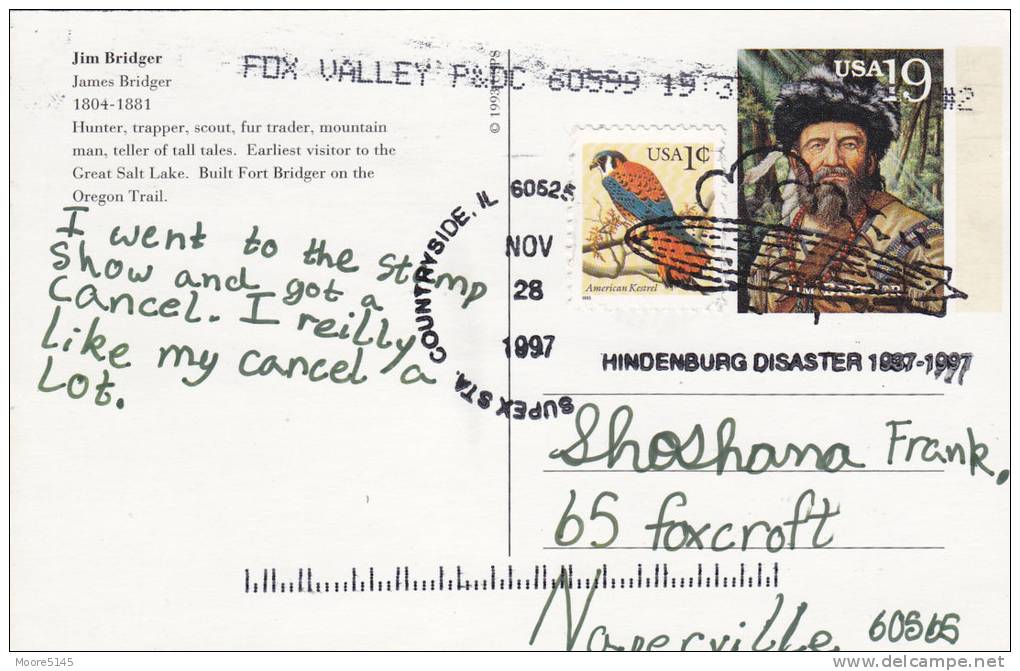 Jim Bridger
James Bridger
1804-1881
Hunter, trapper, scout, fur trader, mountain
man, teller of tall tales. Earliest visitor to the
Great Salt Lake. Built Fort Bridger on the
Oregon Trail.
I went to the stamp
Show and got a
cancel. I reilly
like my cancel a
Lot.
© 1993
FOX VALLEY P&DC 60599 19:3
#2
USA 19
USA 1¢
American Kestrel
1995
SUPEX STA. COUNTRYSIDE, IL 60525
NOV
28
1997
HINDENBURG DISASTER 1937-1997
Shoshana Frank.
65 foxcroft
Naperville 60565
Moore5145
delcampe.net